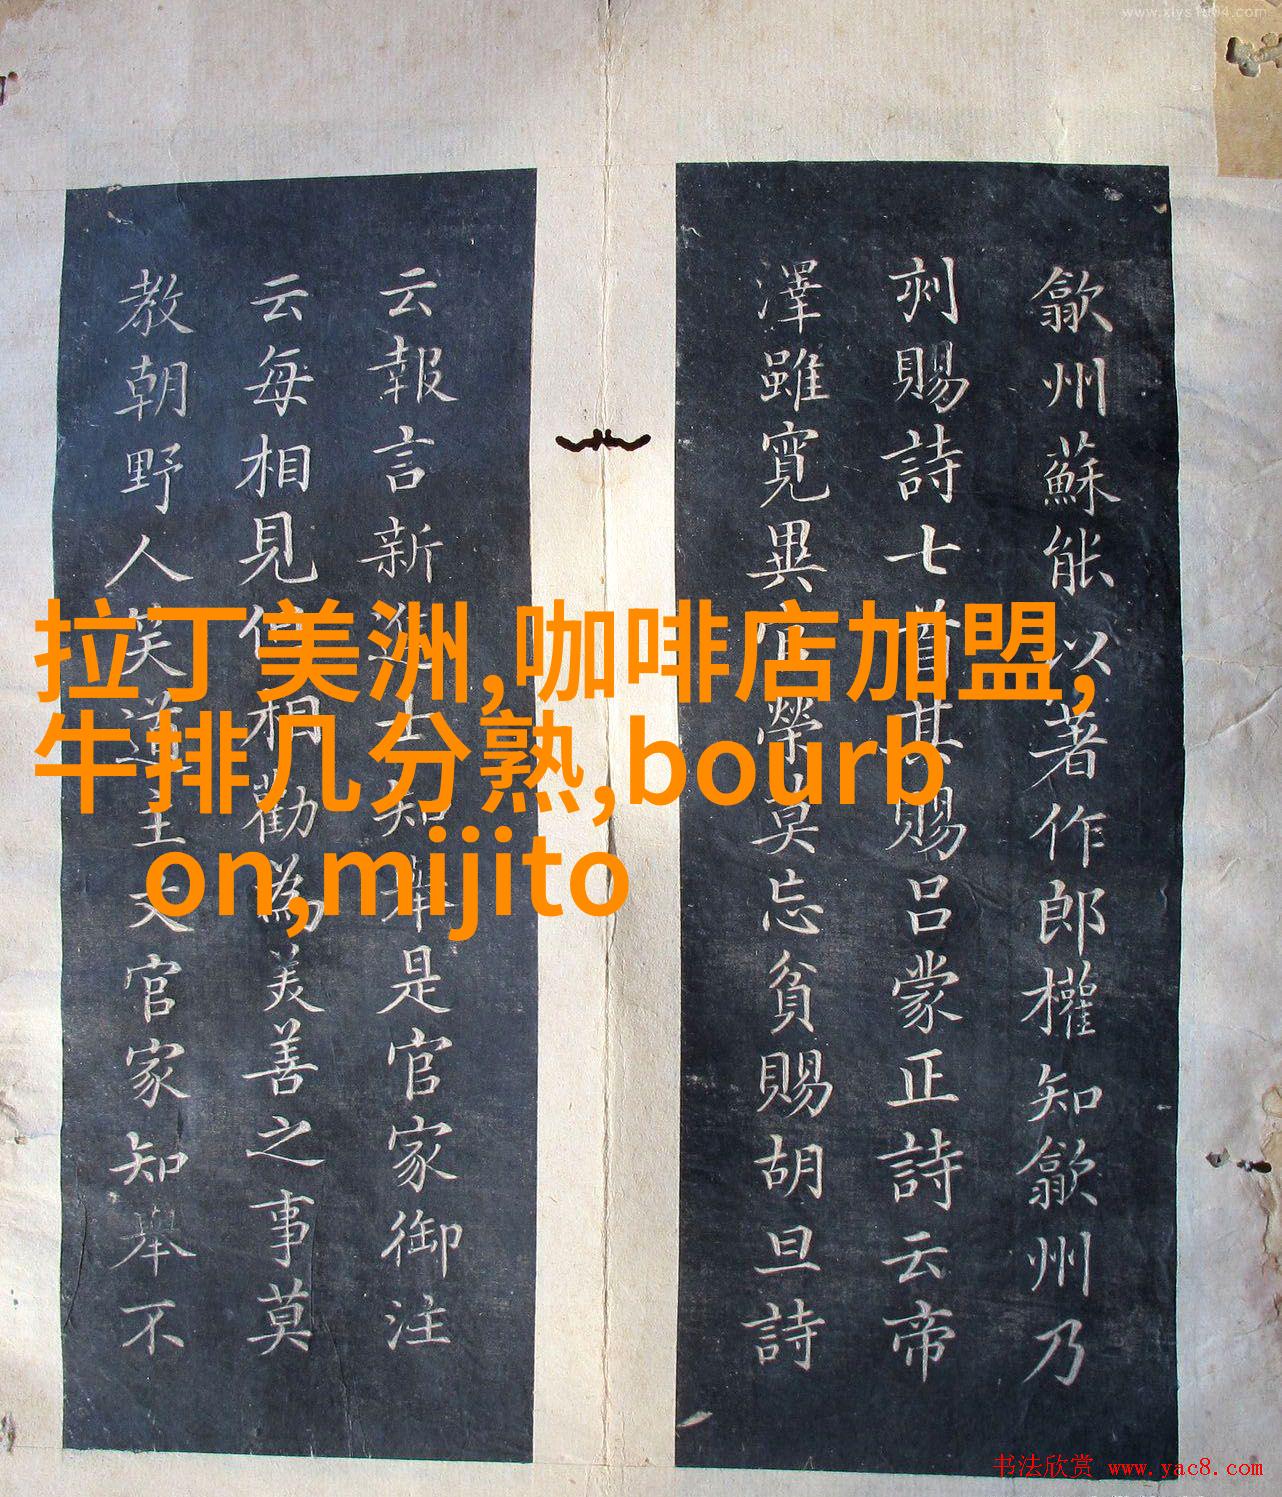 www.xiys1004.com
歙州蘇能以著作郎權知歙州乃
刻賜詩七首其賜呂蒙正詩云帝
澤雖寬異官榮莫忘貧賜胡旦詩
云報言新進士知舉是官家御注
云每相見但相勸為美善之事莫
教朝野人笑道主文官家知舉不
拉丁美洲,咖啡店加盟,
牛排几分熟,bourb
on,mijito
书法欣赏 www.yac8.com